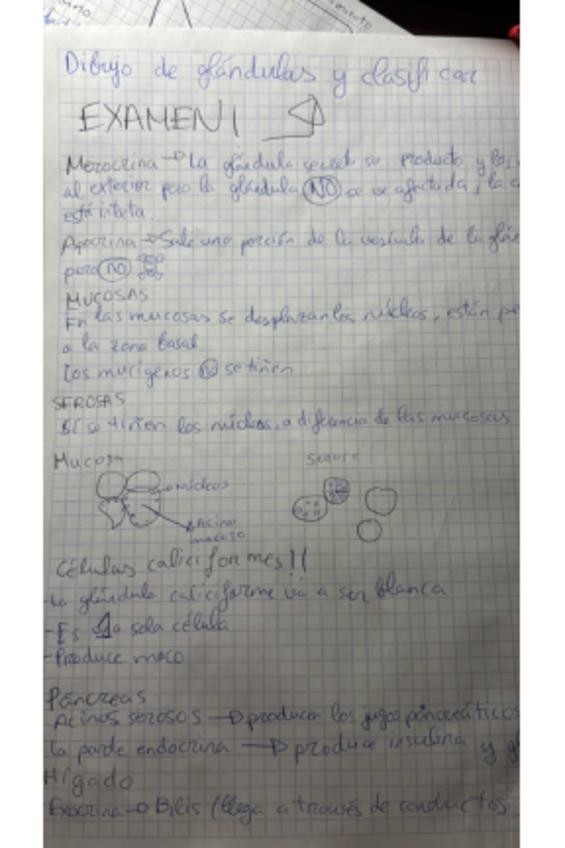 Dibujo de glándulas y clasificar
EXAMEN!
Merocrina → La glándula secreta su producto y los
al exterior pero la glándula NO se ve afectada, la
está intacta.
Apocrina → Sale una porción de la vesícula de la glán
pero NO
MUCOSAS
En las mucosas se desplazan los núcleos, están pe
a la zona basal
Los mucígenos NO se tiñen
SEROSAS
SÍ se tiñen los núcleos, a diferencia de las mucosas
Mucosa Serosa
núcleos
Acino
mucoso
Células caliciformes!!
-La glándula caliciforme va a ser blanca
-Es 1a sola célula
-Produce moco
Páncreas
Acinos serosos → producen los jugos pancreáticos
La parte endocrina → produce insulina y gl
Hígado
Exocrina → Bilis (llega a través de conductos